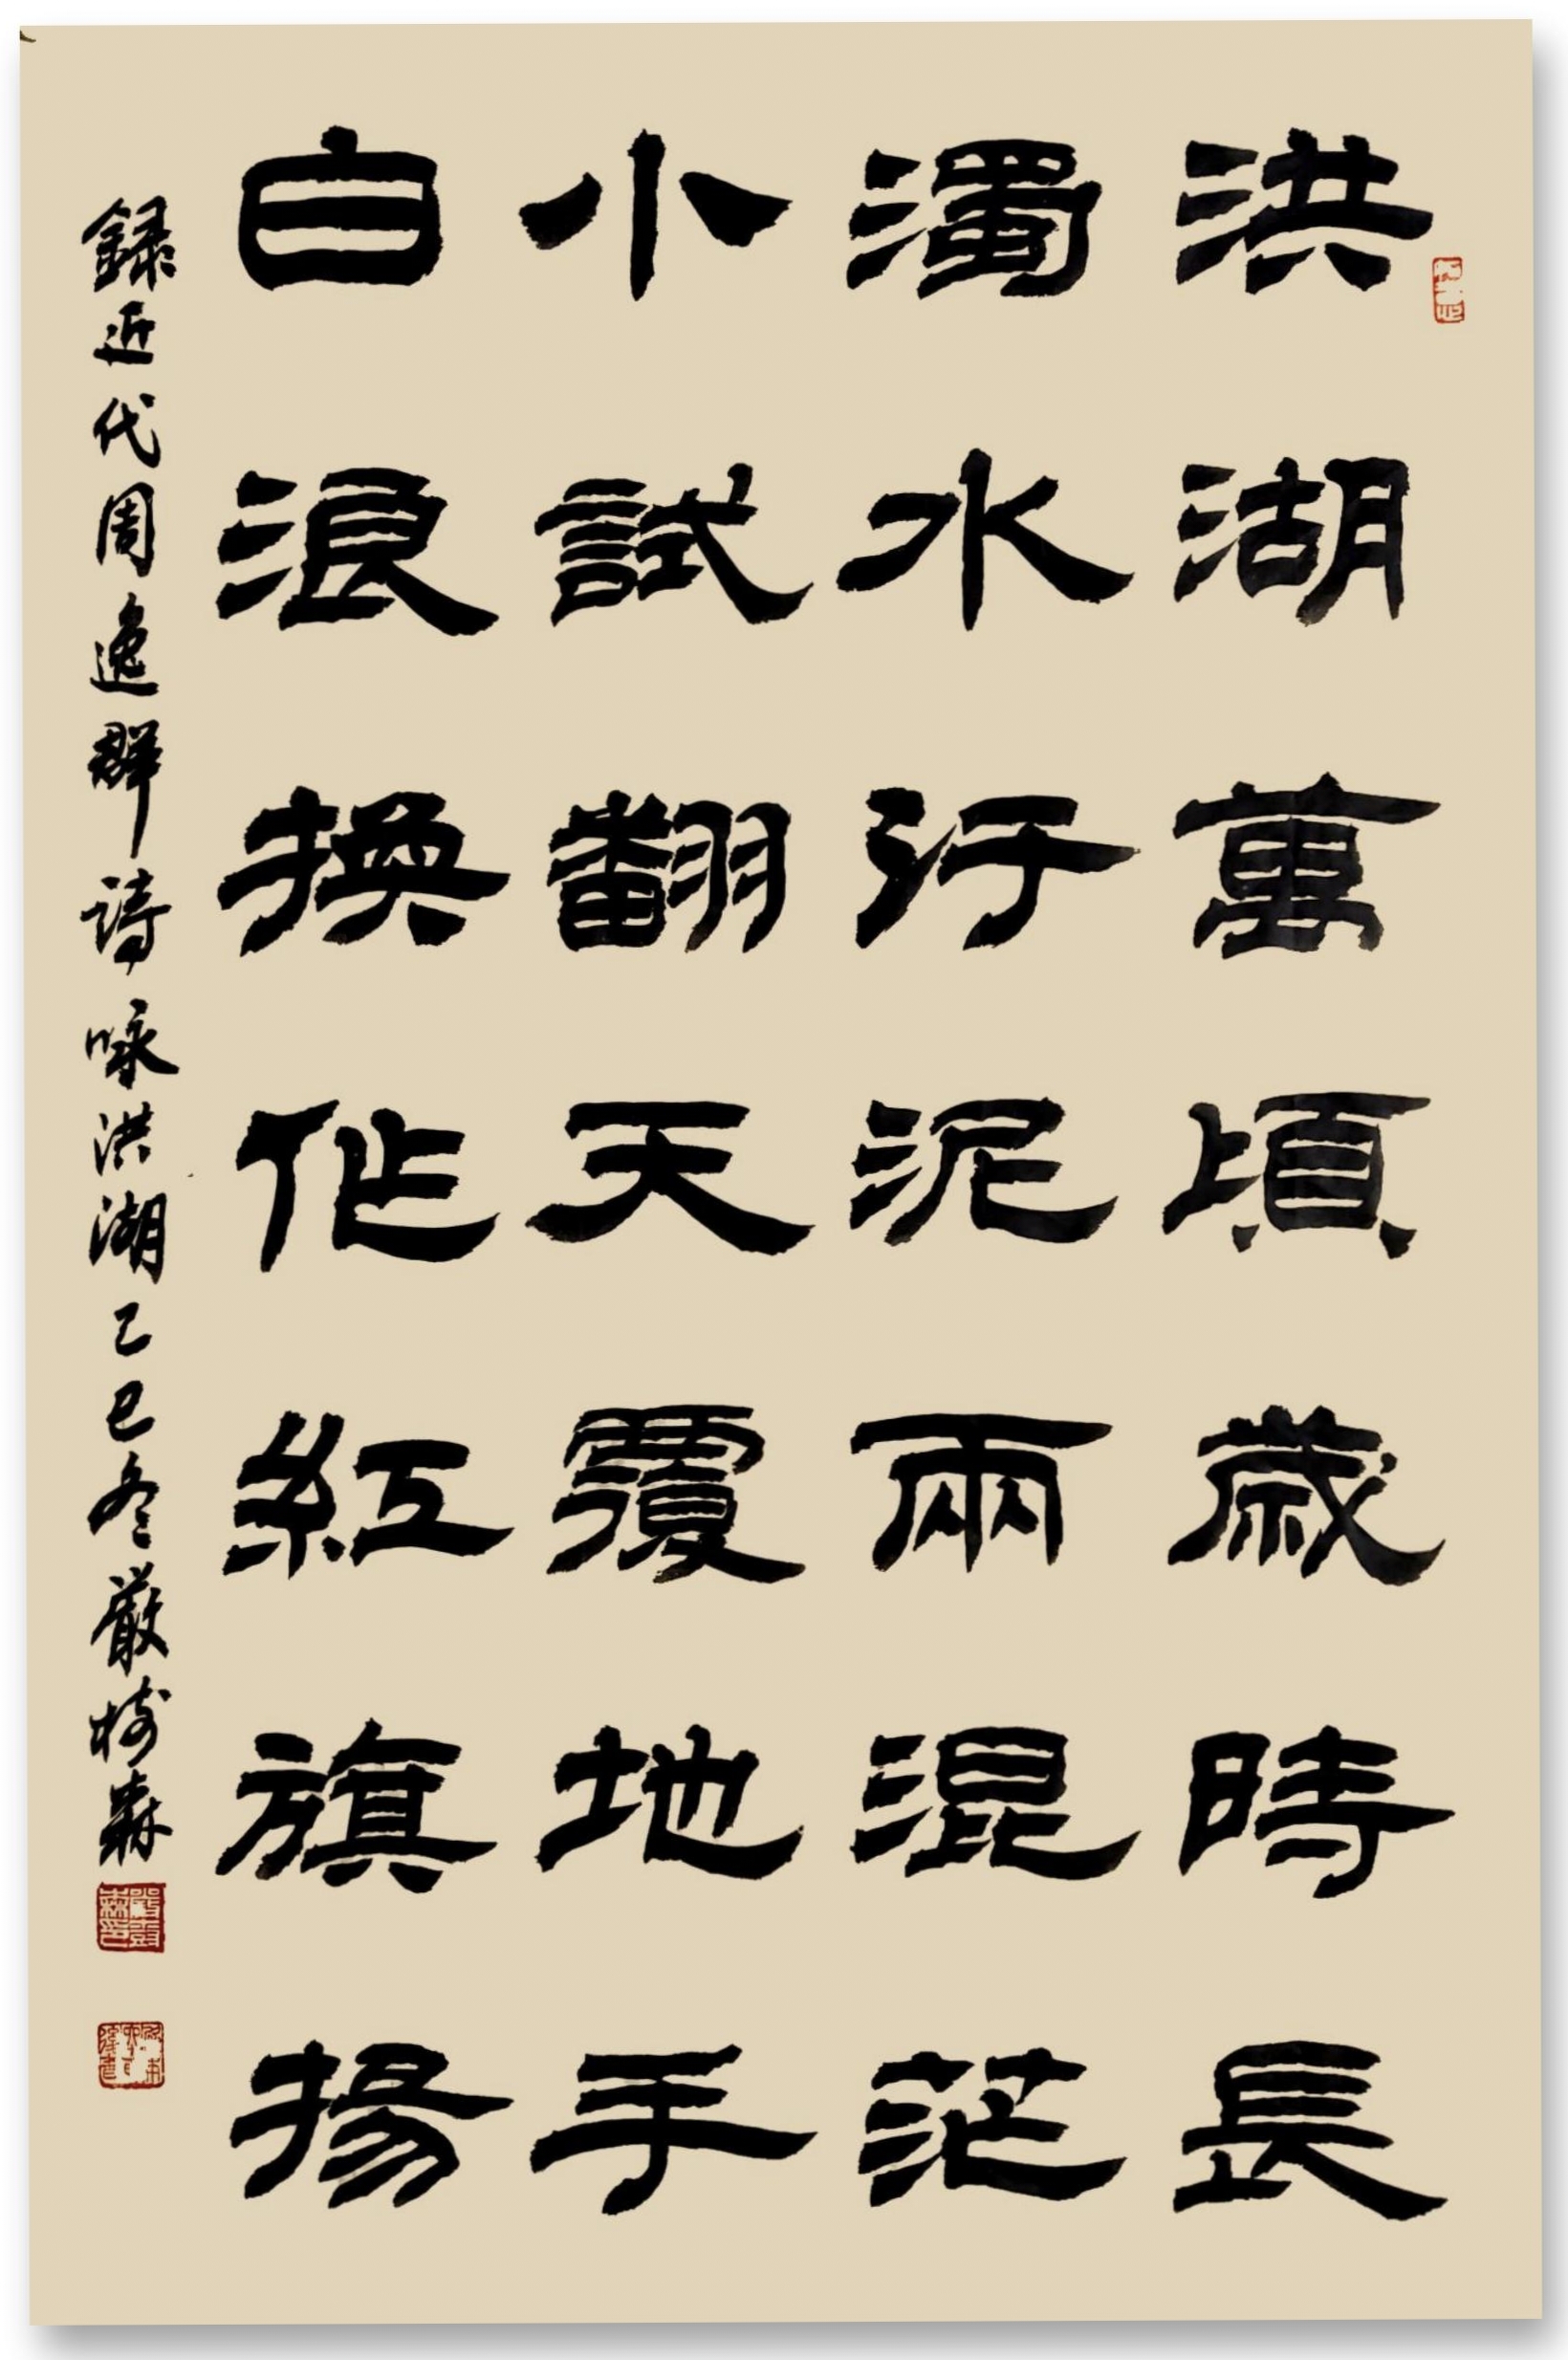 洪湖萬頃歲時長
濁水汙泥兩混茫
小試翻天覆地手
白浪換作紅旗揚
録近代周逸群詩咏洪湖乙巳冬嚴樹森